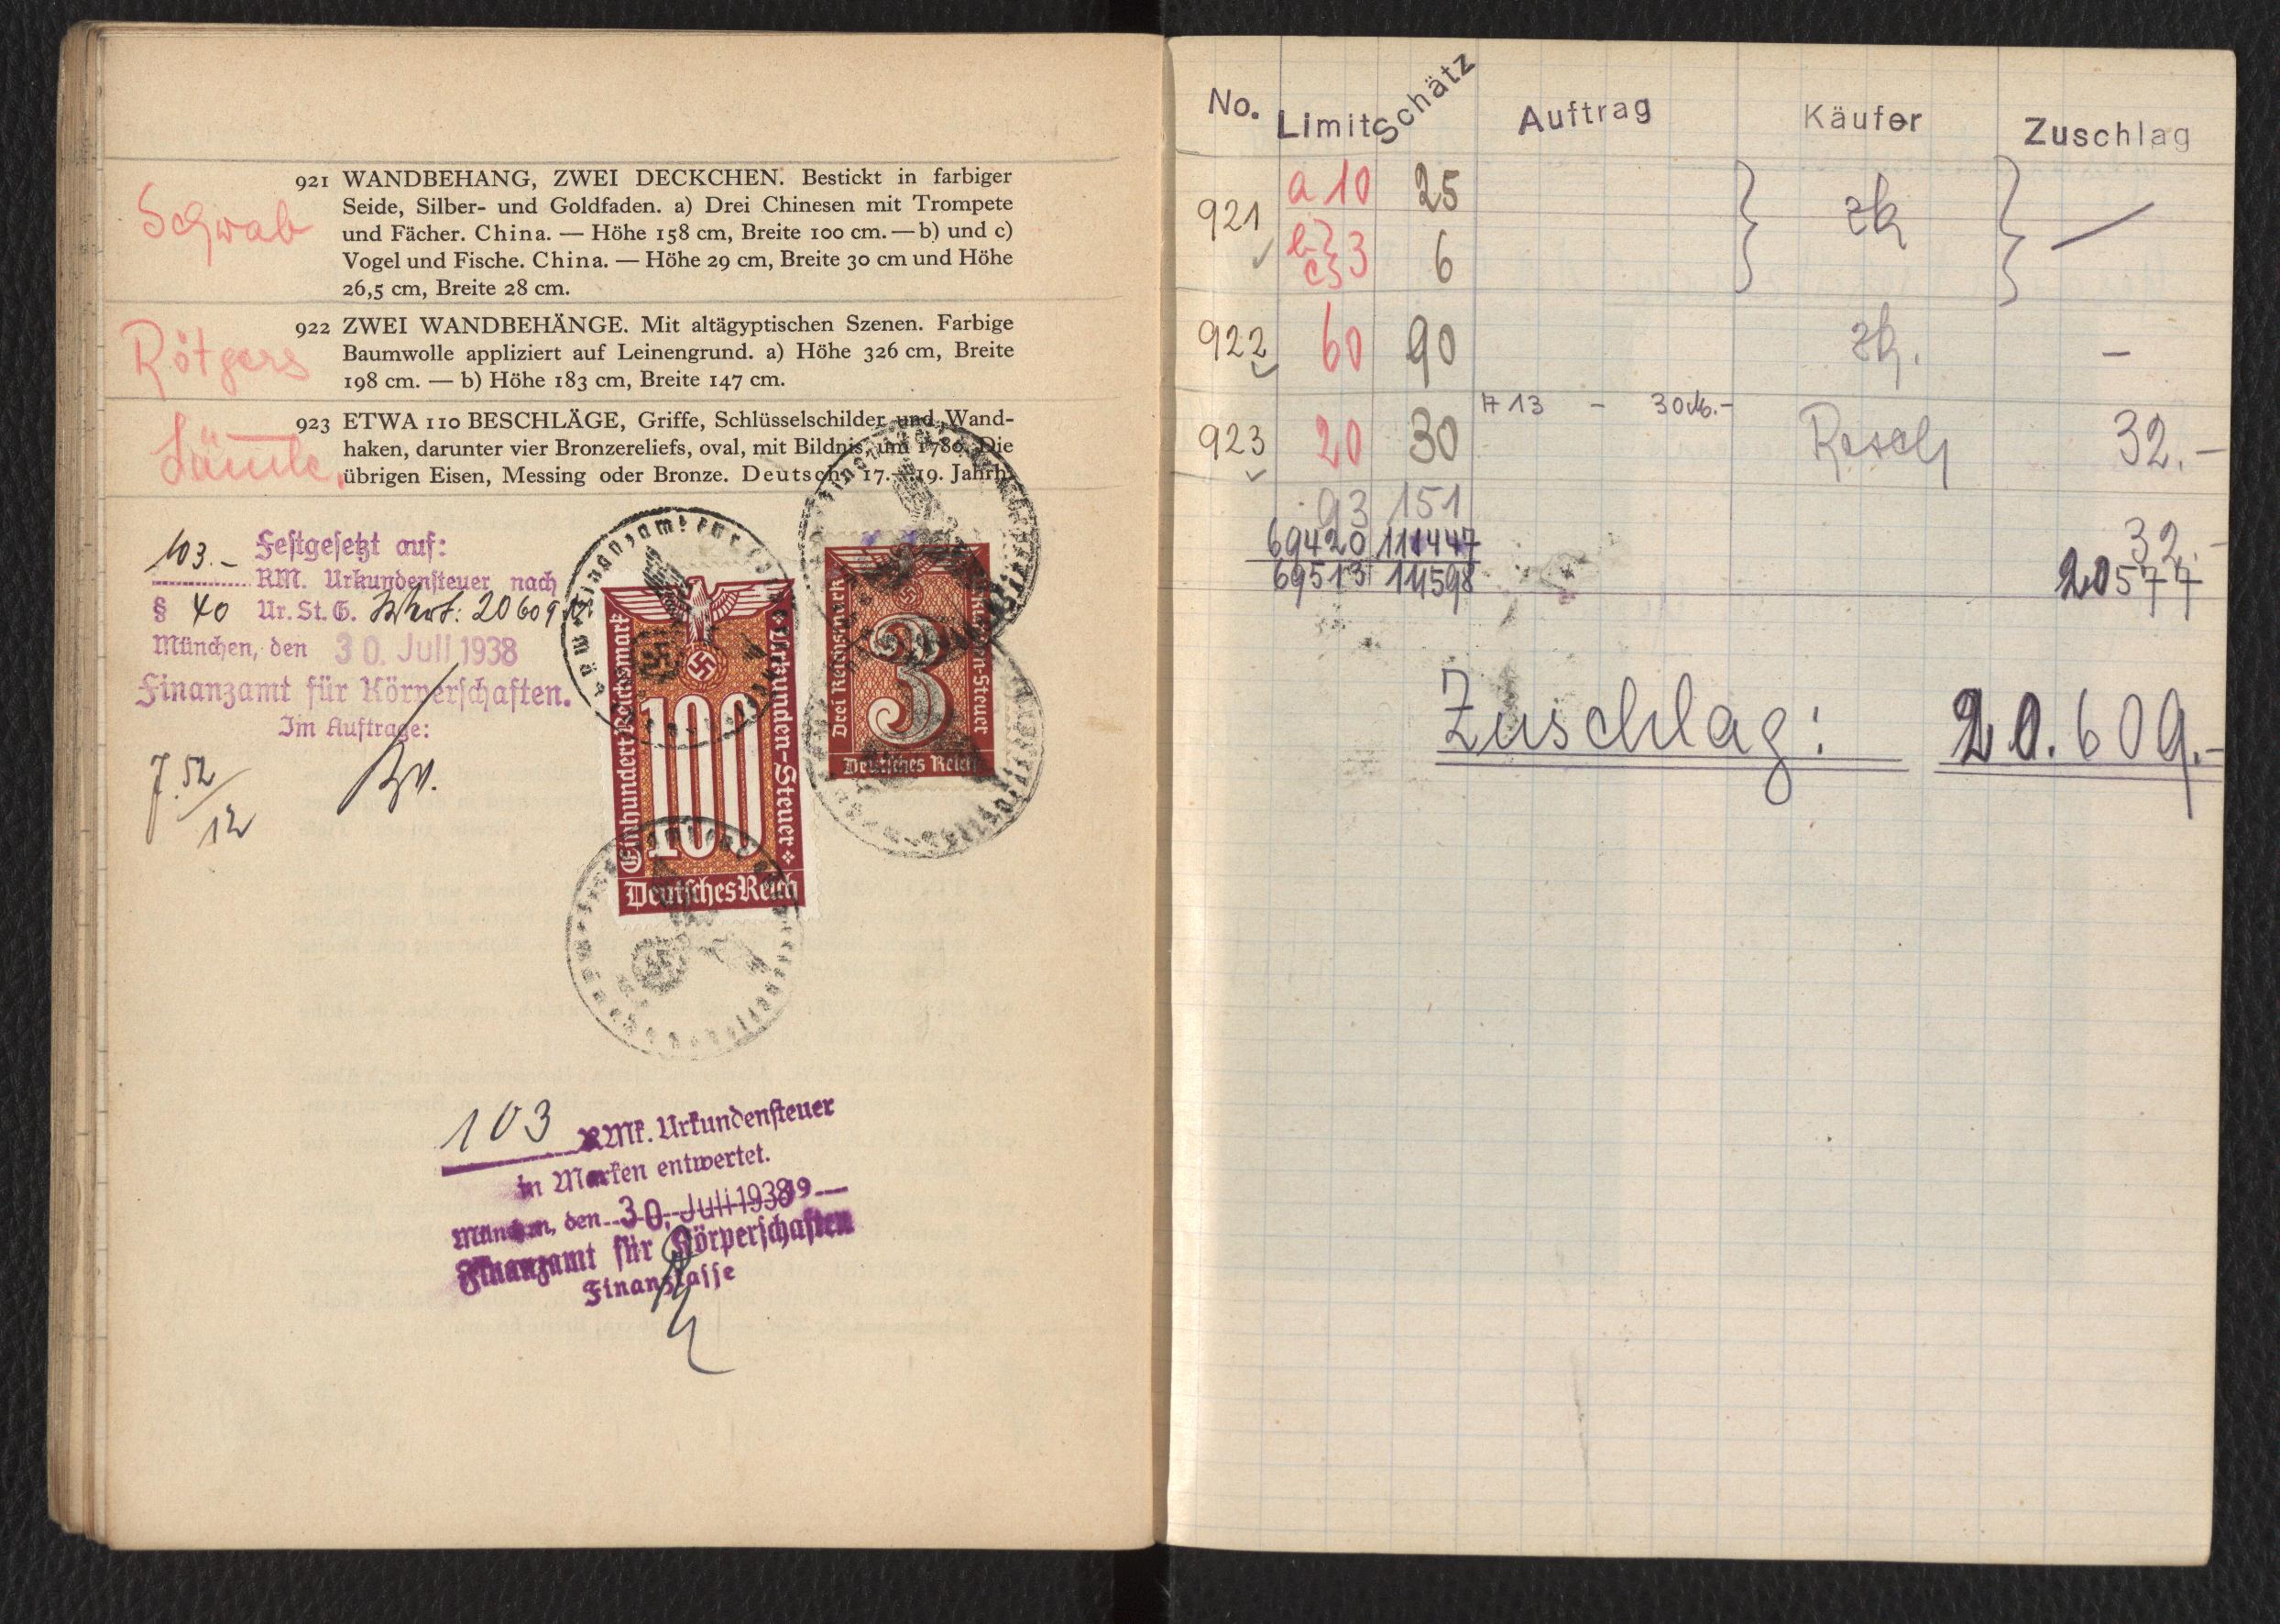 921 WANDBEHANG, ZWEI DECKCHEN. Bestickt in farbiger
Seide, Silber- und Goldfaden. a) Drei Chinesen mit Trompete
Schwab
und Fächer. China. — Höhe 158 cm, Breite 100 cm. — b) und c)
Vogel und Fische. China. — Höhe 29 cm, Breite 30 cm und Höhe
26,5 cm, Breite 28 cm.
922 ZWEI WANDBEHÄNGE. Mit altägyptischen Szenen. Farbige
Rötgers
Baumwolle appliziert auf Leinengrund. a) Höhe 326 cm, Breite
198 cm. — b) Höhe 183 cm, Breite 147 cm.
923 ETWA 110 BESCHLÄGE, Griffe, Schlüsselschilder und Wand-
haken, darunter vier Bronzereliefs, oval, mit Bildnis, um 1780. Die
übrigen Eisen, Messing oder Bronze. Deutsch, 17.—19. Jahrh.
Festgesetzt auf:
103.- RM. Urkundensteuer nach
§ 40 Ur. St. G. 20609
München, den 30. Juli 1938
Finanzamt für Körperschaften.
Im Auftrage:
7.52
12
Einhundert Reichsmark
Urkunden-Steuer
100
Deutsches Reich
Drei Reichsmark
Urkunden-Steuer
3
Deutsches Reich
103 RMk. Urkundensteuer
in Marken entwertet.
München, den 30. Juli 1938 19
Finanzamt für Körperschaften
Finanzkasse
No. Limit Schätz Auftrag Käufer Zuschlag
921 a 10 25 zk —
b } c } 3 6
922 60 90 zk. —
923 20 30 H 13 - 30 M.- Resch 32.-
93 151 32.-
69420 111447 20577
69513 111598
Zuschlag: 20.609.-